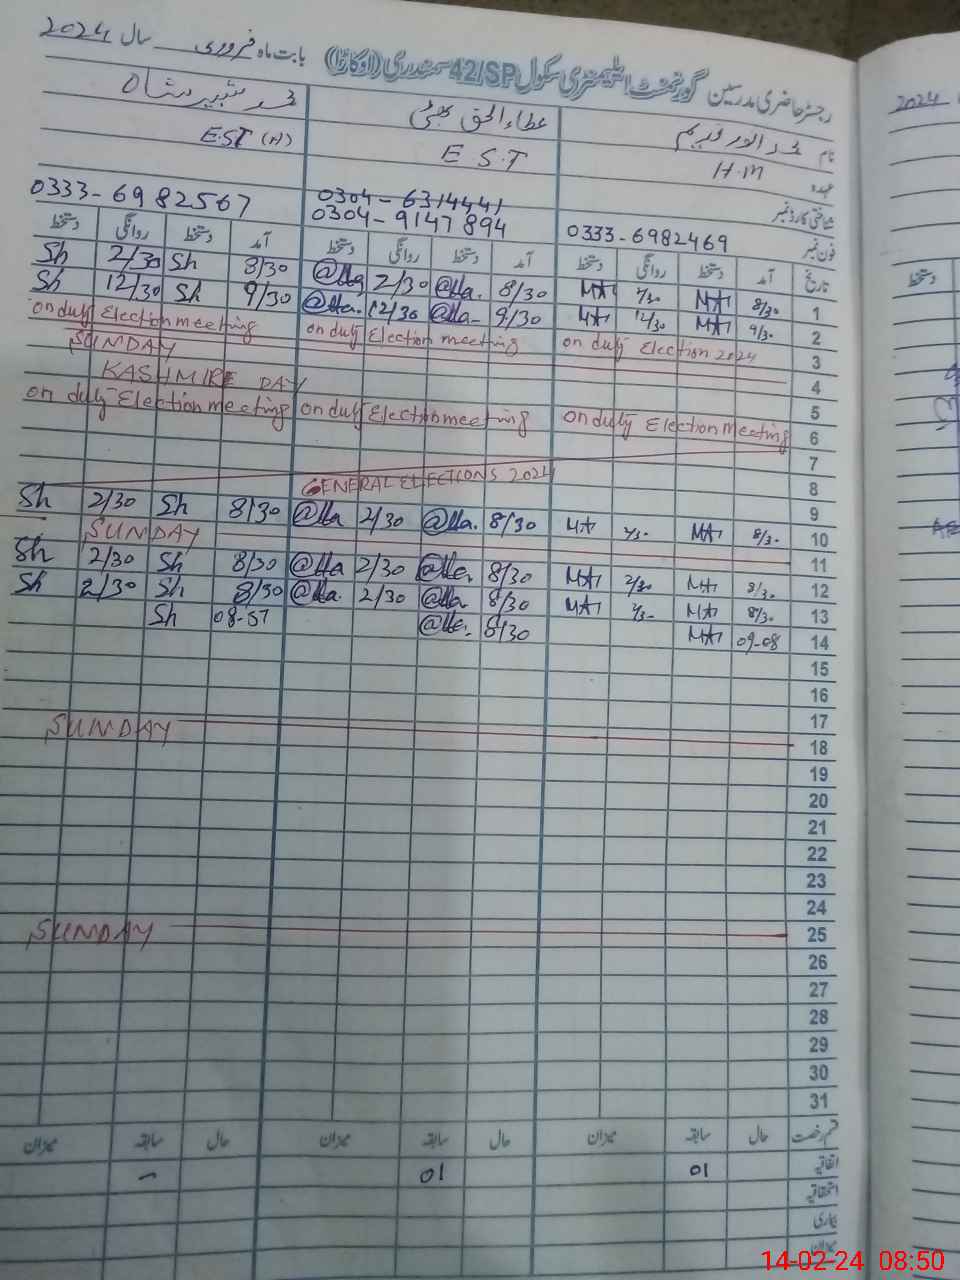 رجسٹر حاضری مدرسین گورنمنٹ ایلیمنٹری سکول 42/SP سمندری (اوکاڑا) بابت ماہ فروری سال 2024
نام محمد انور ندیم عطاء الحق بھٹی محمد شبیر شاہ
عہدہ H.M E S.T E.ST (A)
شناختی کارڈ نمبر 0304-6314441
فون نمبر 0333-6982469 0304-9147894 0333-6982567
تاریخ آمد دستخط روانگی دستخط آمد دستخط روانگی دستخط آمد دستخط روانگی دستخط
Sh 2/30 Sh 8/30 @tta 2/30 @tta. 8/30 MA 2/30 MA 8/30 1
Sh 12/30 Sh 9/30 @tta. 12/30 @tta- 9/30 MA 12/30 MA 9/30. 2
on duty Election meeting on duty Election meeting on duty Election 2024 3
SUNDAY 4
KASHMIRE DAY 5
on duty Election meeting on duty Election meeting on duty Election Meeting 6
7
GENERAL ELECTIONS 2024 8
9
Sh 2/30 Sh 8/30 @tta 2/30 @tta. 8/30 MA 2/30. MA 8/30. 10
SUNDAY 11
Sh 2/30 Sh 8/30 @tta 2/30 @tta. 8/30 MA 2/30 MA 8/30. 12
Sh 2/30 Sh 8/30 @tta. 2/30 @tta 8/30 MA 2/30- MA 8/30. 13
Sh 08-57 @tta. 8/30 MA 09-08 14
15
16
17
SUNDAY 18
19
20
21
22
23
24
SUNDAY 25
26
27
28
29
30
31
قسم رخصت حال سابقہ میزان حال سابقہ میزان حال سابقہ میزان
اتفاقیہ 01 01 –
استحقاقیہ
بیماری
میزان
2024
دستخط
14-02-24 08:50